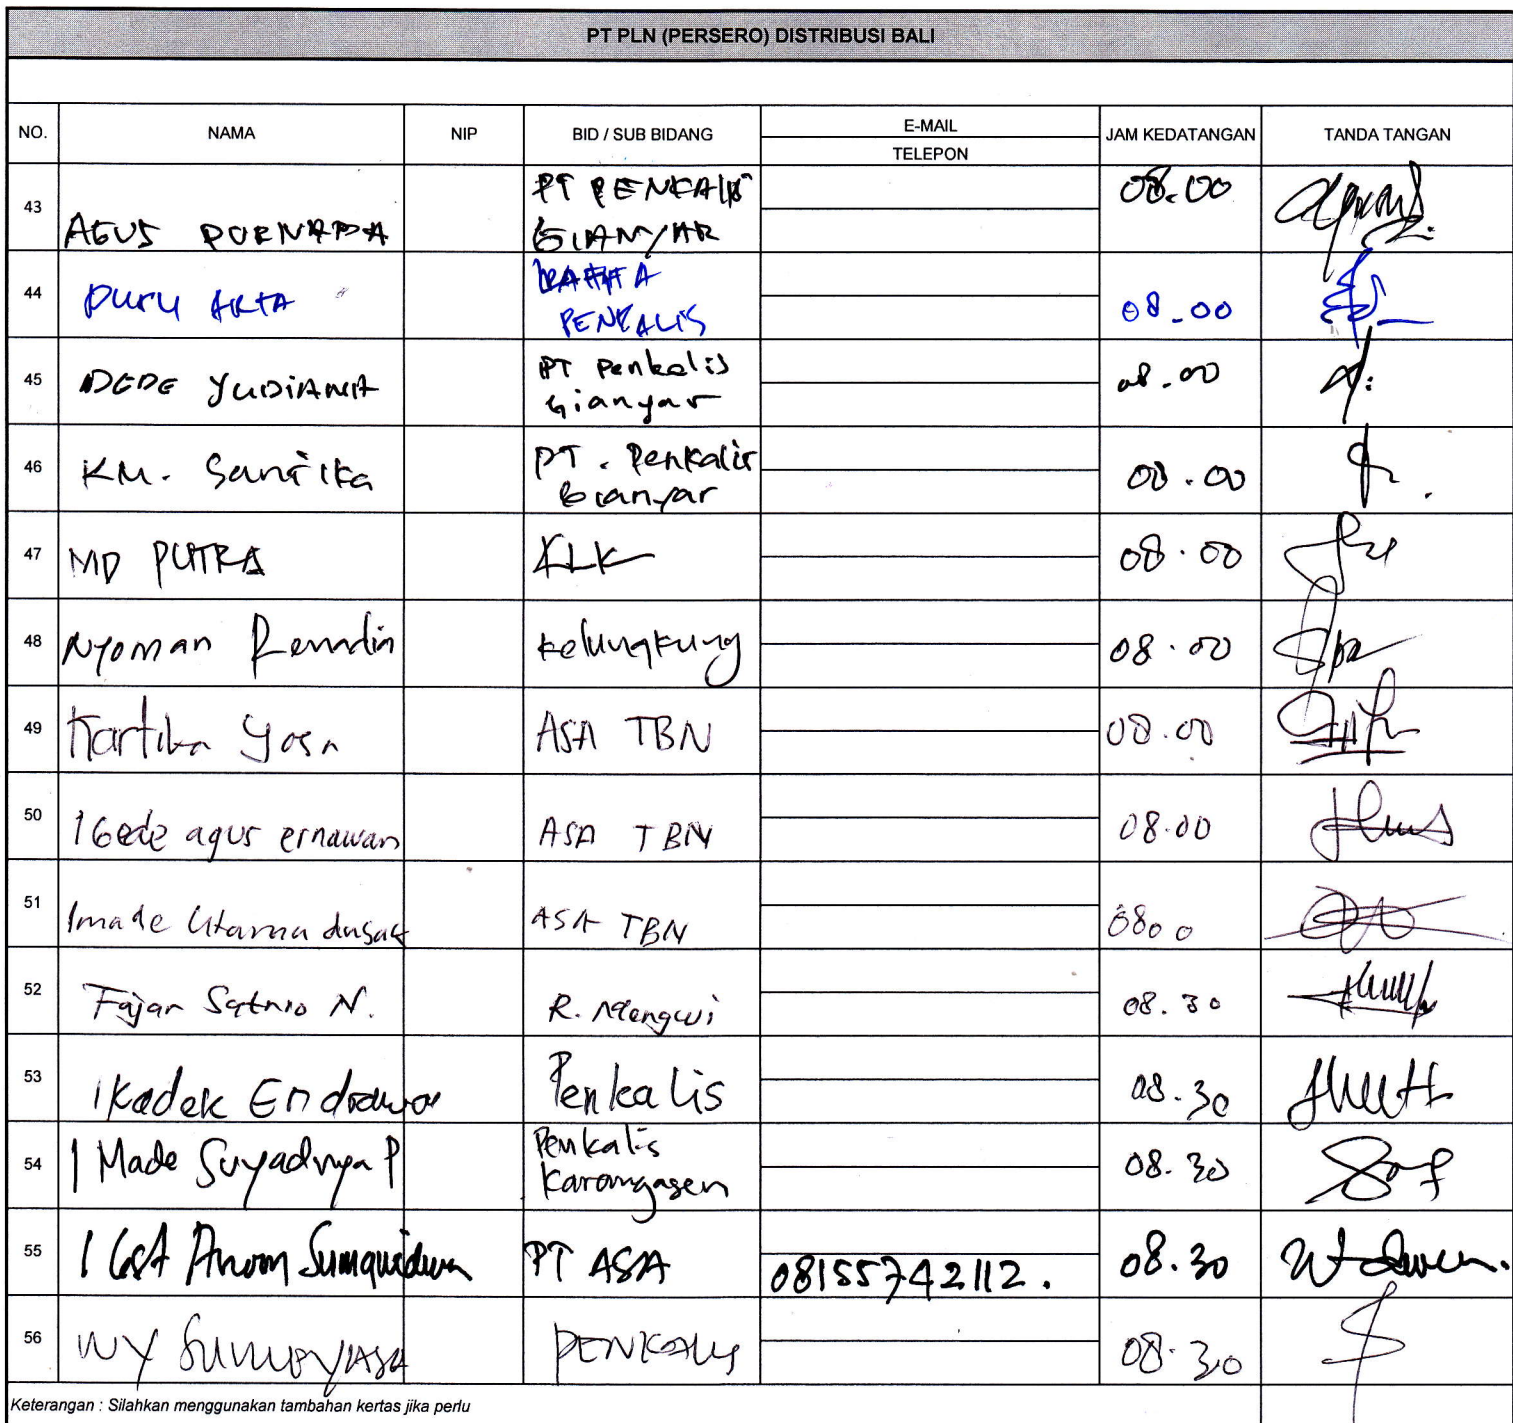 PT PLN (PERSERO) DISTRIBUSI BALI
NO. NAMA NIP BID / SUB BIDANG E-MAIL JAM KEDATANGAN TANDA TANGAN
TELEPON
43 AGUS PURNAPA PT PENKALIS 08.00
GIANYAR
44 PUTU ARTA PENKALIS 08.00
45 DEDE YUDIANA PT Penkalis 08.00
Gianyar
46 KM. Santika PT. Penkalis 08.00
Gianyar
47 MD PUTRA KLK 08.00
48 Nyoman Kelungkung 08.00
49 Kartika Yosa ASA TBN 08.00
50 I Gede agus ernawan ASA TBN 08.00
51 I made Utama ASA TBN 0800
52 Fajar Satrio N. R. Mengwi 08.30
53 I Kadek Endrawan Penkalis 08.30
54 I Made Suryadnya P Penkalis 08.30
Karangasem
55 I Gst Anom PT ASA 08155742112. 08.30
56 WY PENKALIS 08.30
Keterangan : Silahkan menggunakan tambahan kertas jika perlu